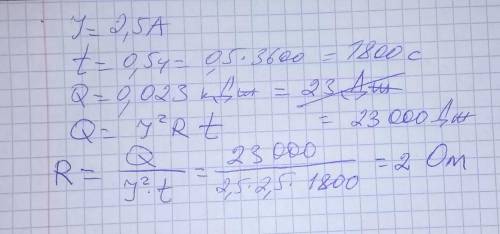 J = 2,5A
t = 0,5ч = 0,5·3600 = 1800 с
Q = 0,023 кДж = 23 Дж
Q = J²Rt = 23 000 Дж
R = Q / J²·t = 23 000 / 2,5·2,5·1800 = 2 Ом